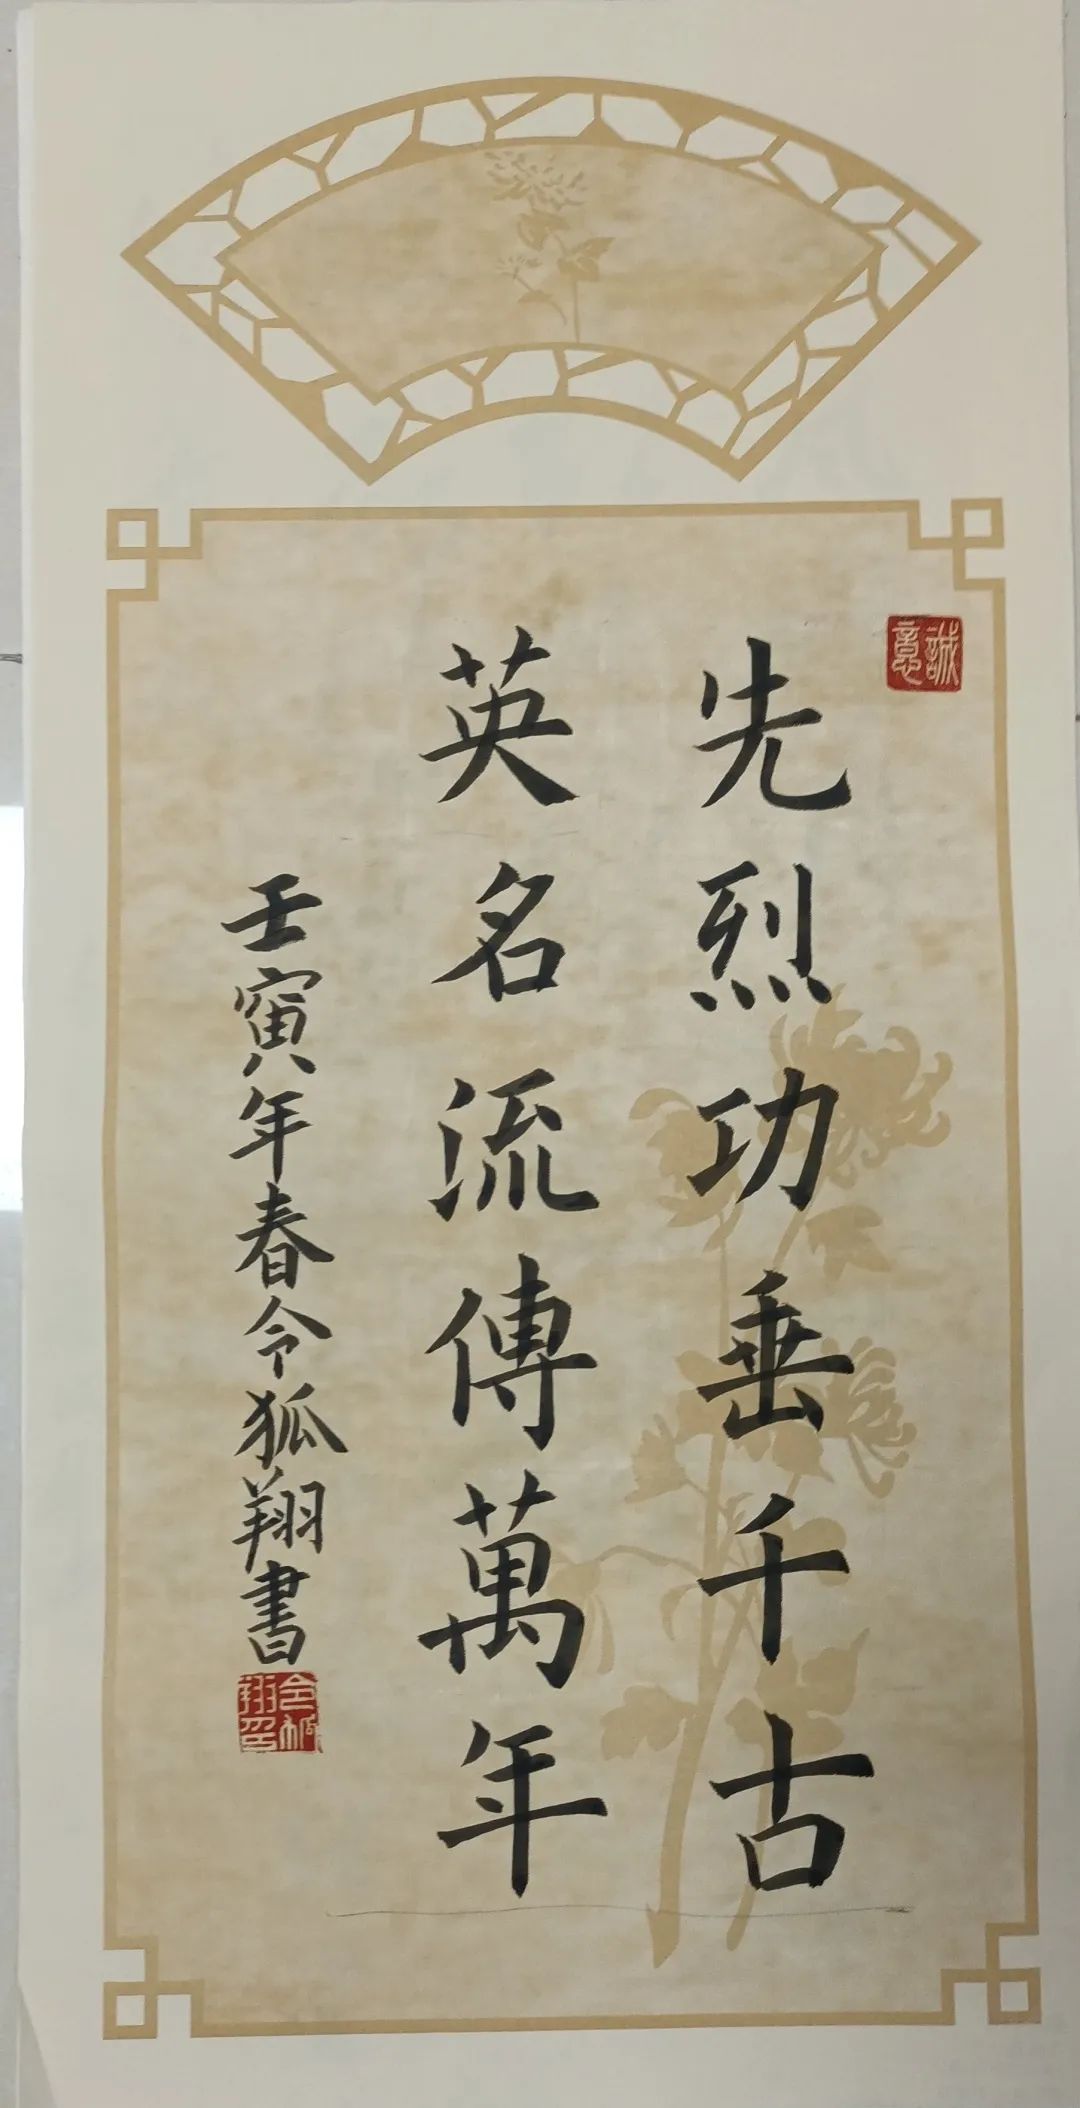 誠意
先烈功垂千古
英名流傳萬年
壬寅年春令狐翔書
令狐翔印